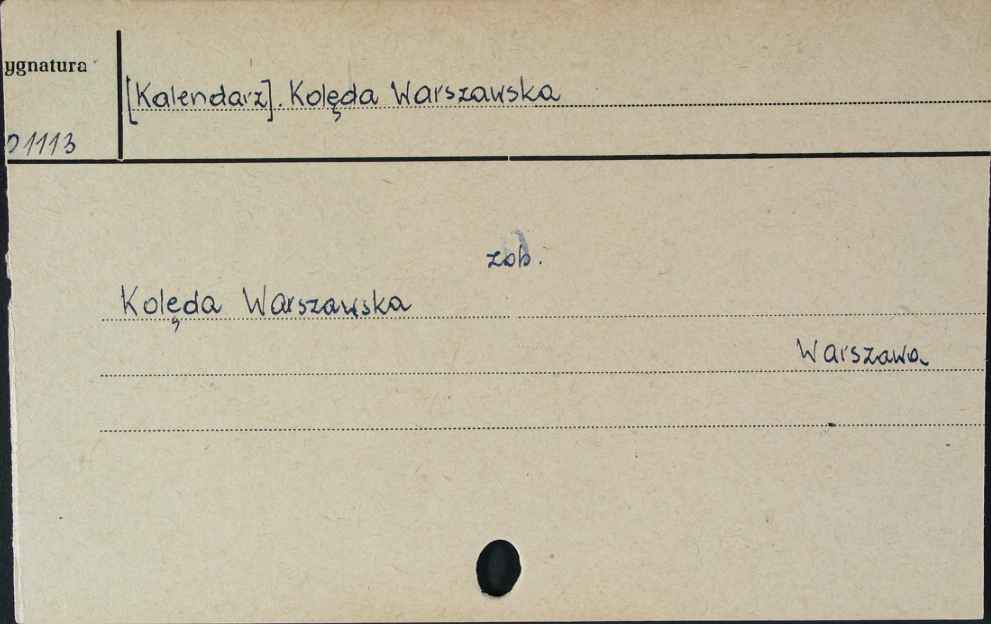 ygnatura
[Kalendarz]. Kolęda Warszawska
01113
zob.
Kolęda Warszawska
Warszawa